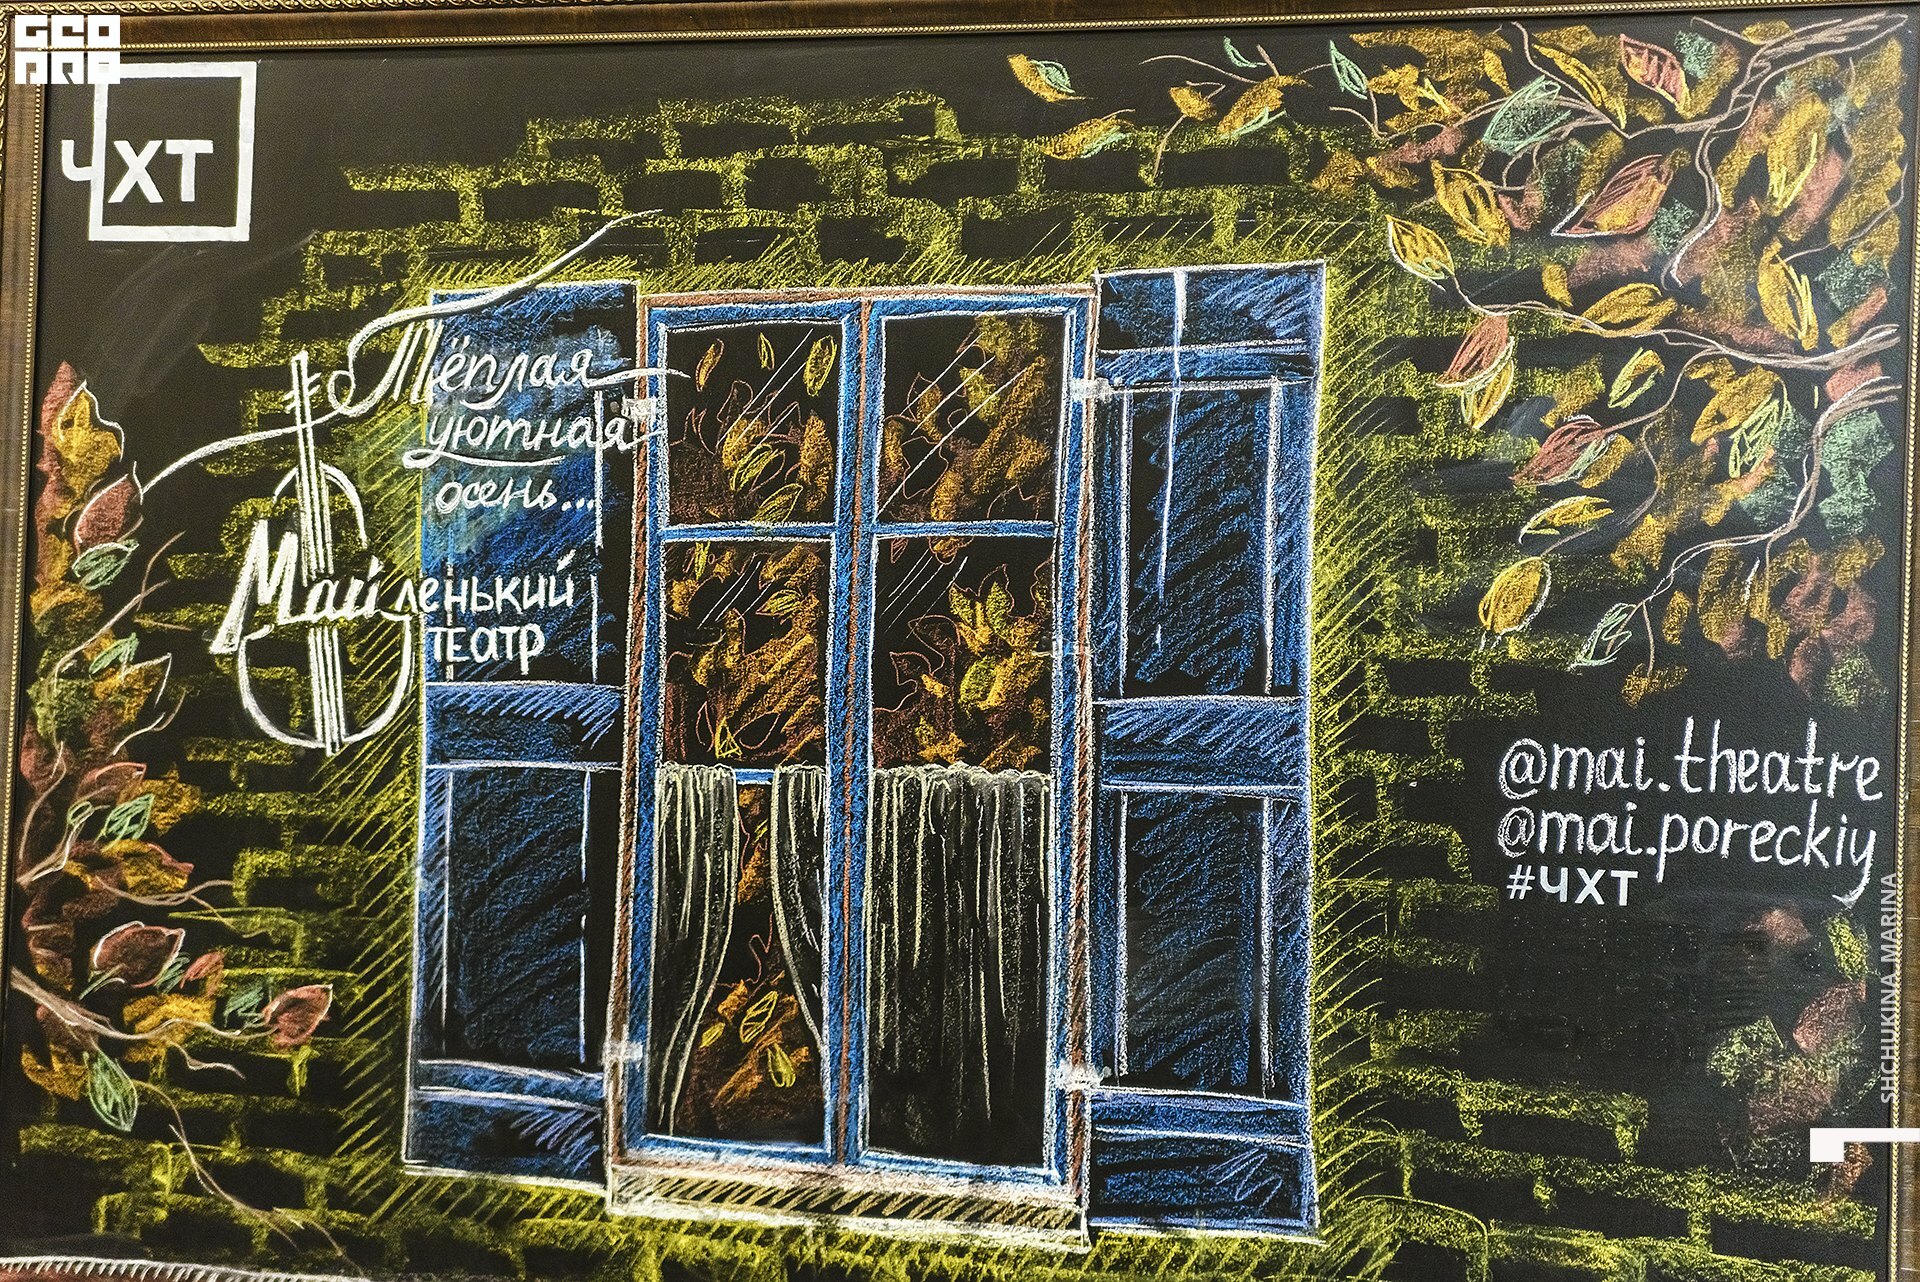 GEO
PRO
ЧХТ
Тёплая
уютная
осень...
Май ленький
театр
@mai.theatre
@mai.poreckiy
#ЧХТ
SHCHUKINA MARINA